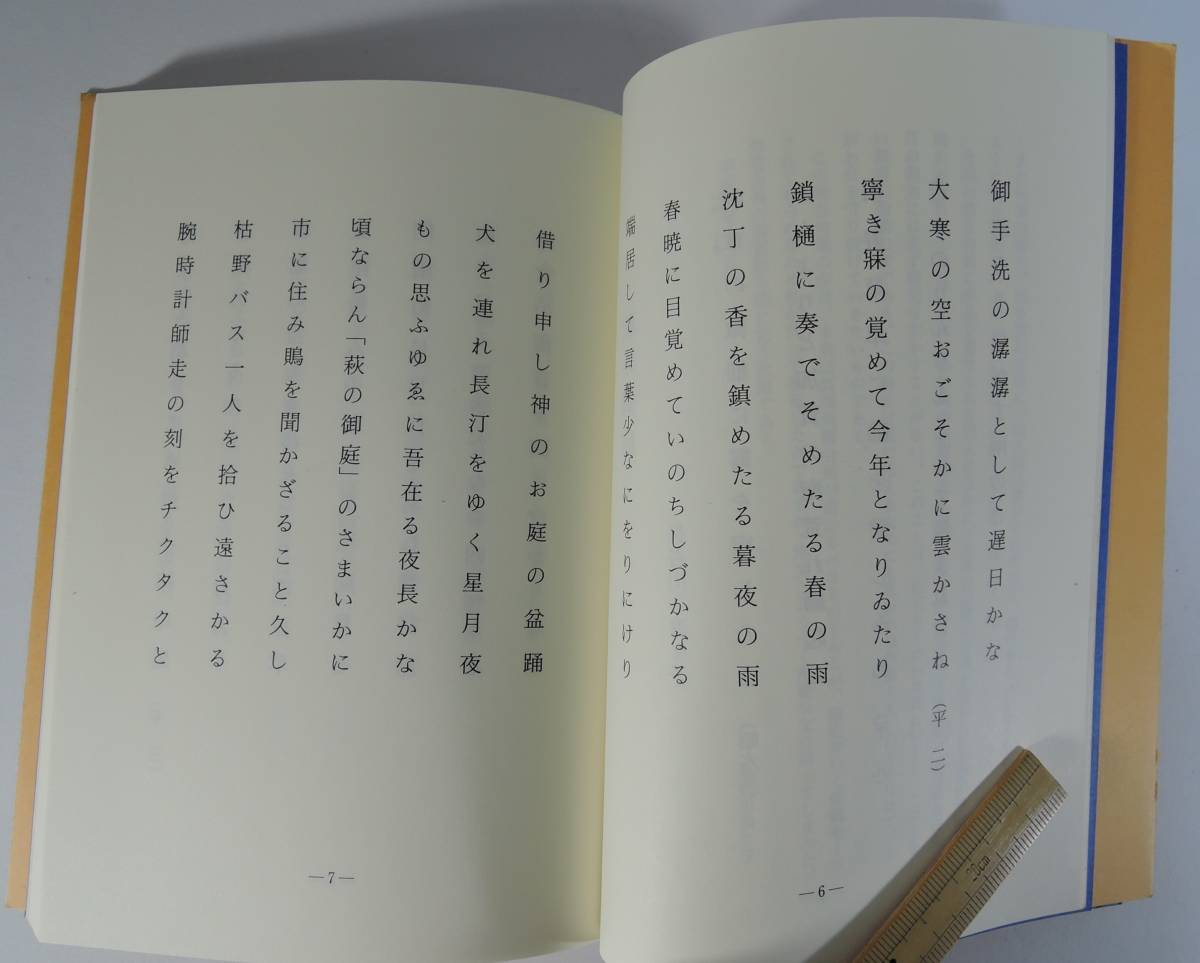 御手洗の潺潺として遅日かな
大寒の空おごそかに雲かさね（平二）
寧き寐の覚めて今年となりゐたり
鎖樋に奏でそめたる春の雨
沈丁の香を鎮めたる暮夜の雨
春暁に目覚めていのちしづかなる
端居して言葉少なにをりにけり
—6—
借り申し神のお庭の盆踊
犬を連れ長汀をゆく星月夜
もの思ふゆゑに吾在る夜長かな
頃ならん「萩の御庭」のさまいかに
市に住み鵙を聞かざること久し
枯野バス一人を拾ひ遠さかる
腕時計師走の刻をチクタクと
—7—
20cm